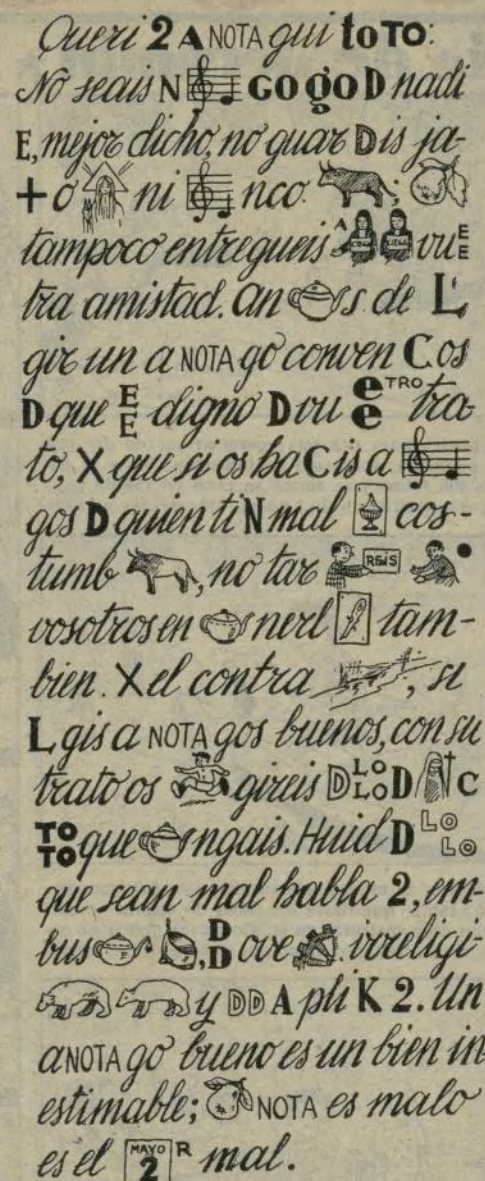 Queri 2 A NOTA gui toTO:
No seais N GO go D nadi
E, mejor dicho, no guar D is ja-
+ o ni nco. ;
tampoco entregueis A COMO LUEGO vu E E
tra amistad. An s. de L,
gir un a NOTA go conven C os
D que E E digno D vu e e TRO tra-
to, X que si os ha C is a
gos D quien ti N mal cos-
tumb , no tar REIS
vosotros en nerl tam-
bien. X el contra , si
L gis a NOTA gos buenos, con su
trato os gireis D LO LO D C
TO TO que ngais. Huid D LO LO
que sean mal habla 2, em-
bus , D D ove . irreligi-
y DD A pli K 2. Un
a NOTA go bueno es un bien in-
estimable; NOTA es malo
es el MAYO 2 R mal.